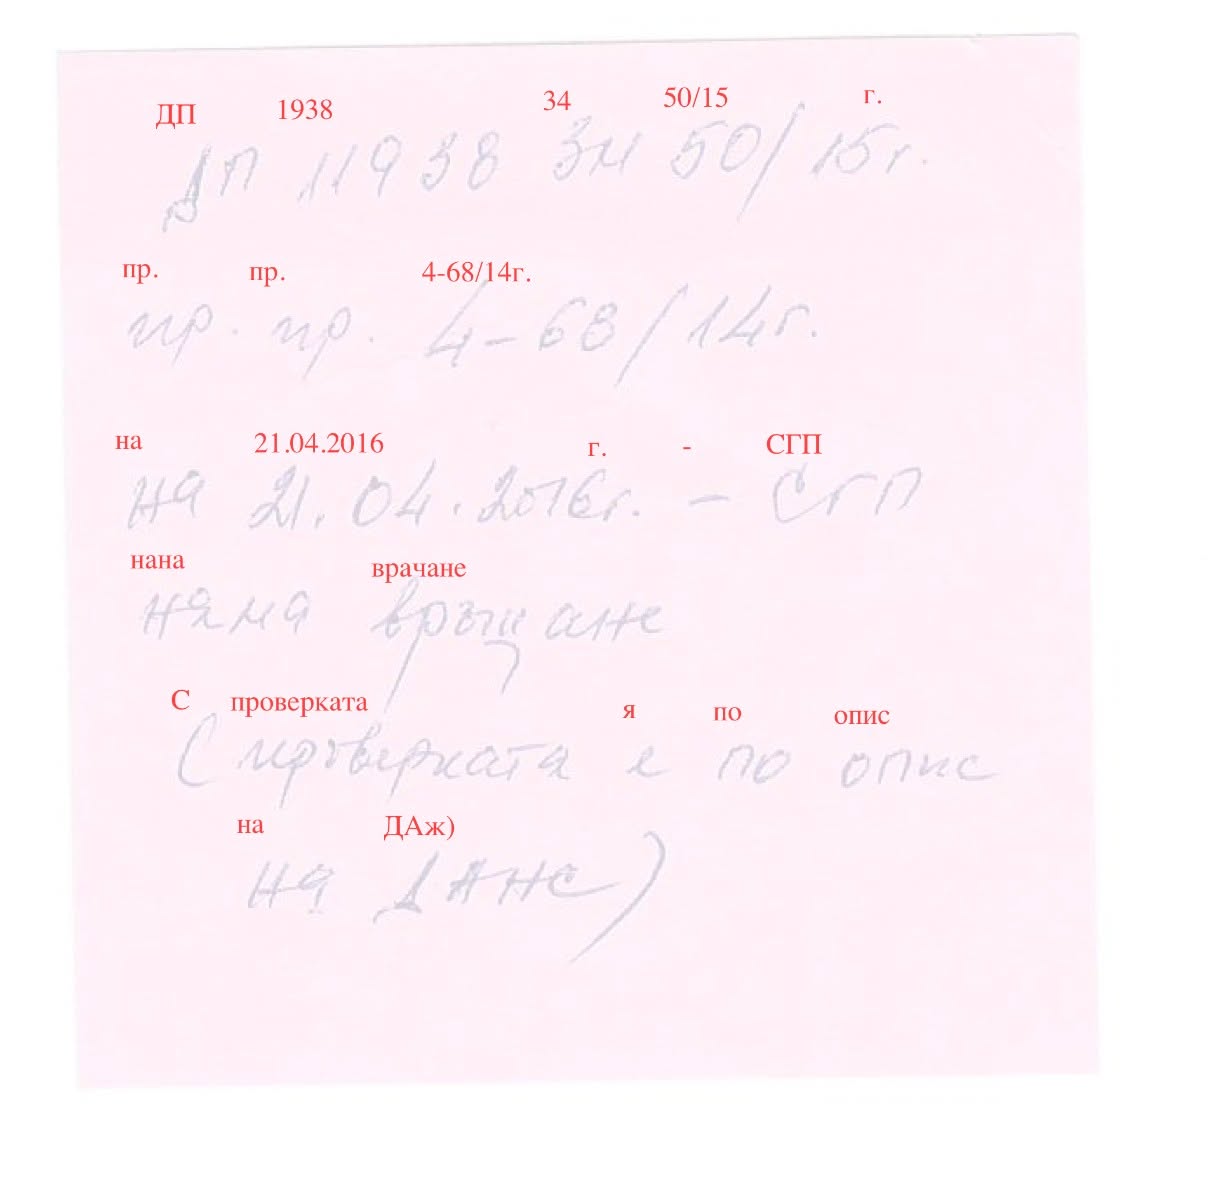 ДП 1938 34 50/15 г.
ДП 11938 ЗМ 50/15г.
пр. пр. 4-68/14г.
пр. пр. 4-68/14г.
на 21.04.2016 г. - СГП
на 21.04.2016г. - СГП
нана врачане
няма връщане
С проверката я по опис
(проверката е по опис
на ДАж)
на ДАНС)